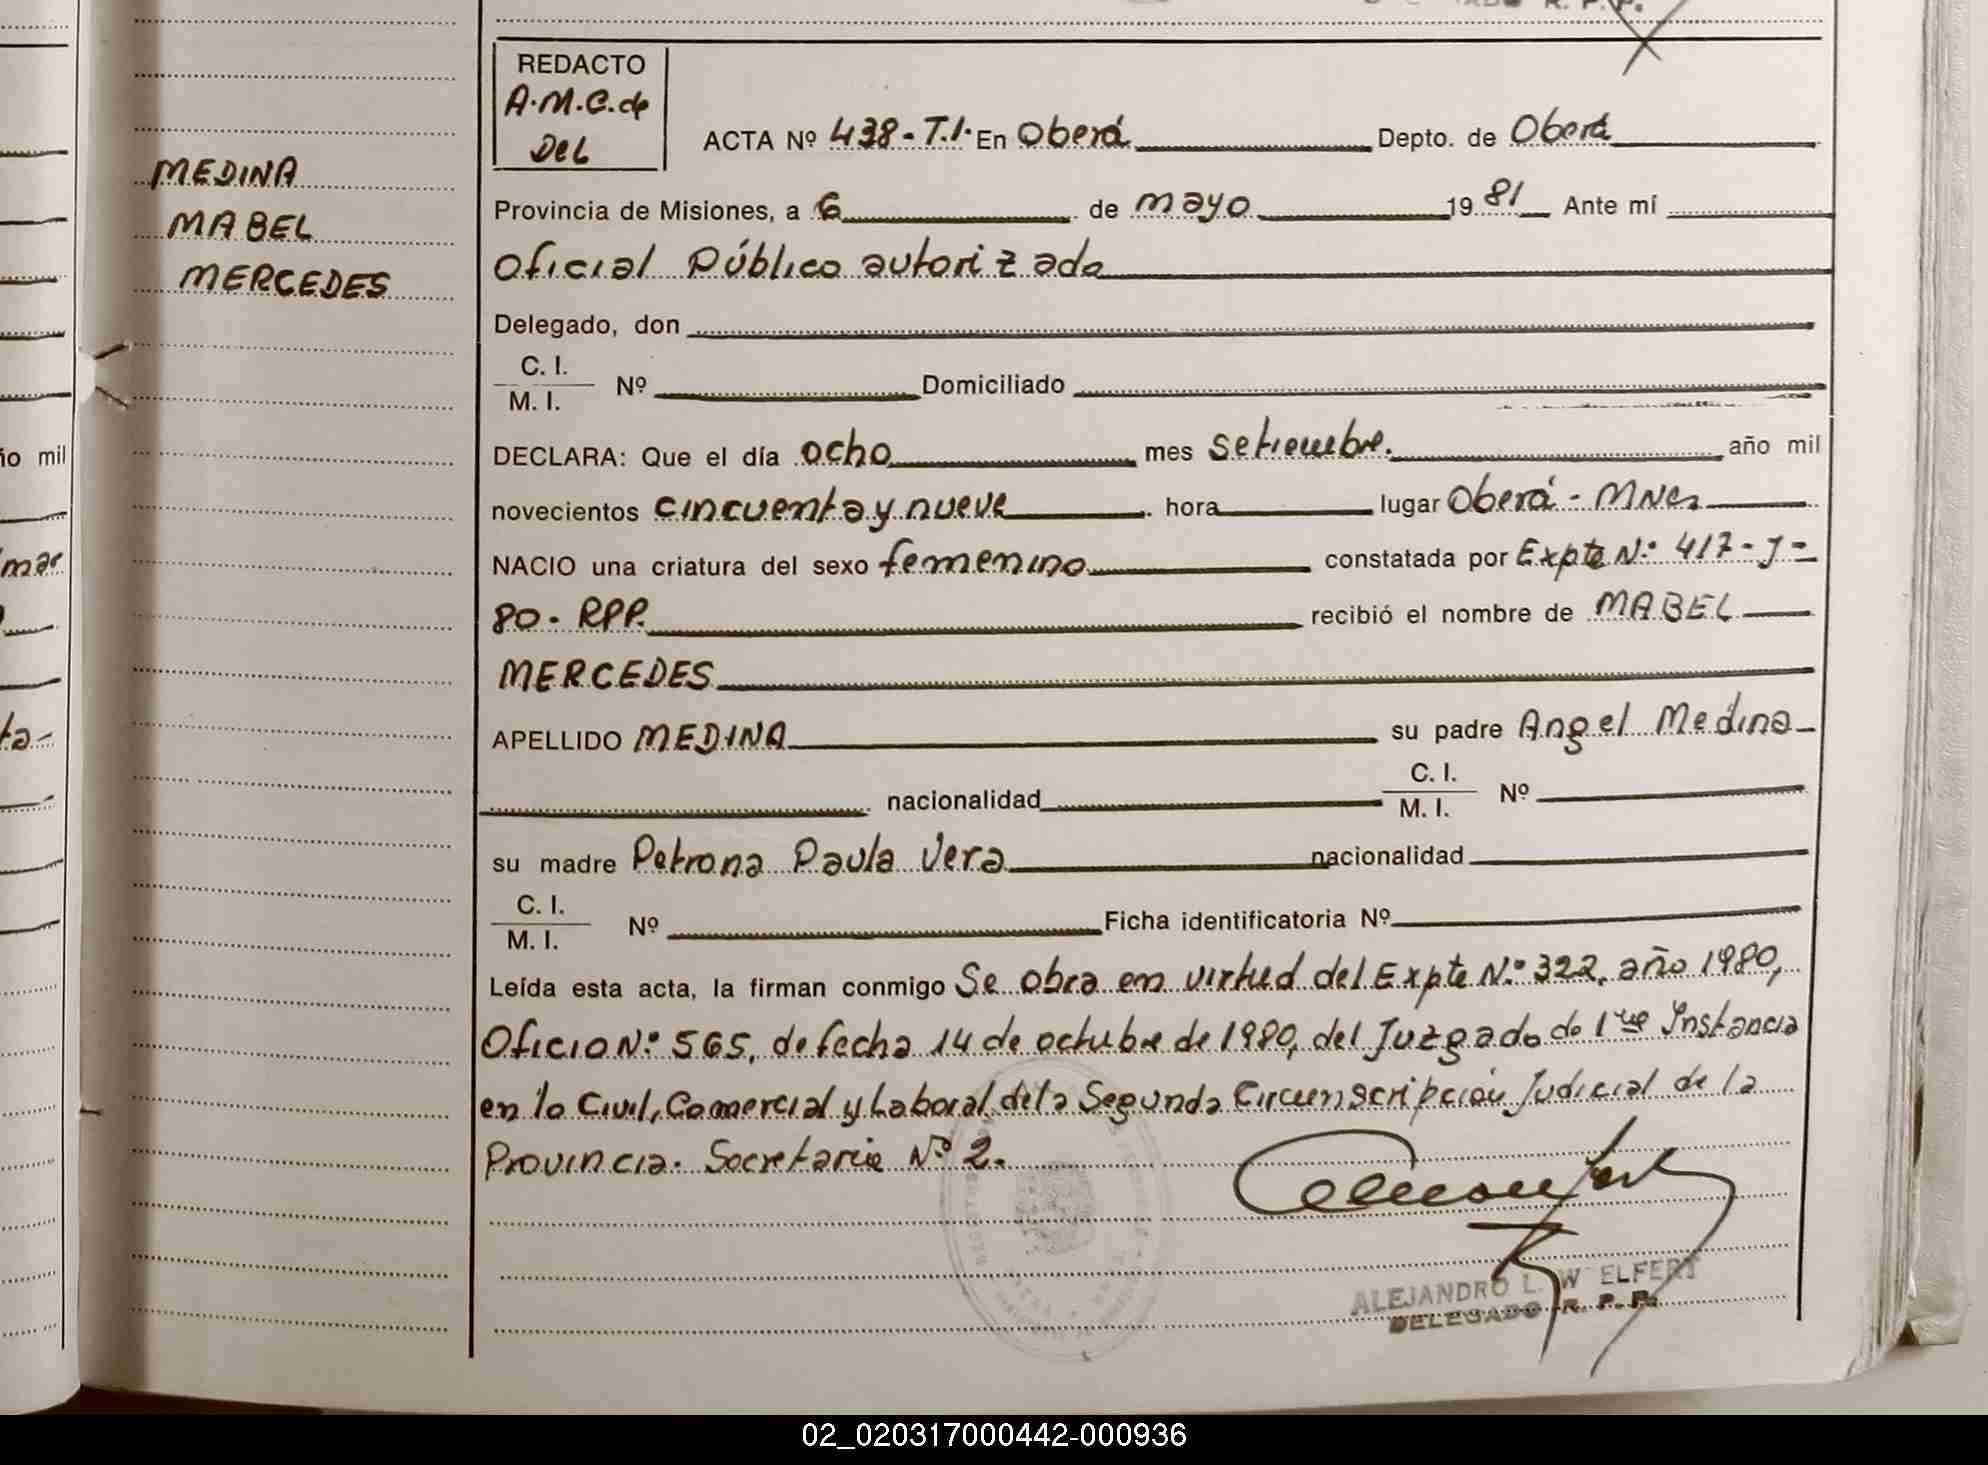 REDACTO
A.M.C. de
DEL
MEDINA
MABEL
MERCEDES
ACTA Nº 438-T.I. En Oberá Depto. de Oberá
Provincia de Misiones, a 6 de mayo 1981 Ante mí
Oficial Público autorizada
Delegado, don
C. I.
M. I. Nº Domiciliado
DECLARA: Que el día ocho mes setiembre. año mil
novecientos cincuenta y nueve hora lugar Oberá - MNes
NACIO una criatura del sexo femenino constatada por Expte Nº 417-J-
80. RPP. recibió el nombre de MABEL
MERCEDES
APELLIDO MEDINA su padre Angel Medina
nacionalidad C. I.
M. I. Nº
su madre Petrona Paula Vera nacionalidad
C. I.
M. I. Nº Ficha identificatoria Nº
Leída esta acta, la firman conmigo Se obra en virtud del Expte Nº 322, año 1980,
Oficio Nº 565, de fecha 14 de octubre de 1980, del Juzgado de 1ra Instancia
en lo Civil, Comercial y Laboral de la Segunda Circunscripción Judicial de la
Provincia. Secretaria Nº 2.
ALEJANDRO L. W ELFERT
DELEGADO R. P. P.
ío mil
mar
ta-
02_020317000442-000936